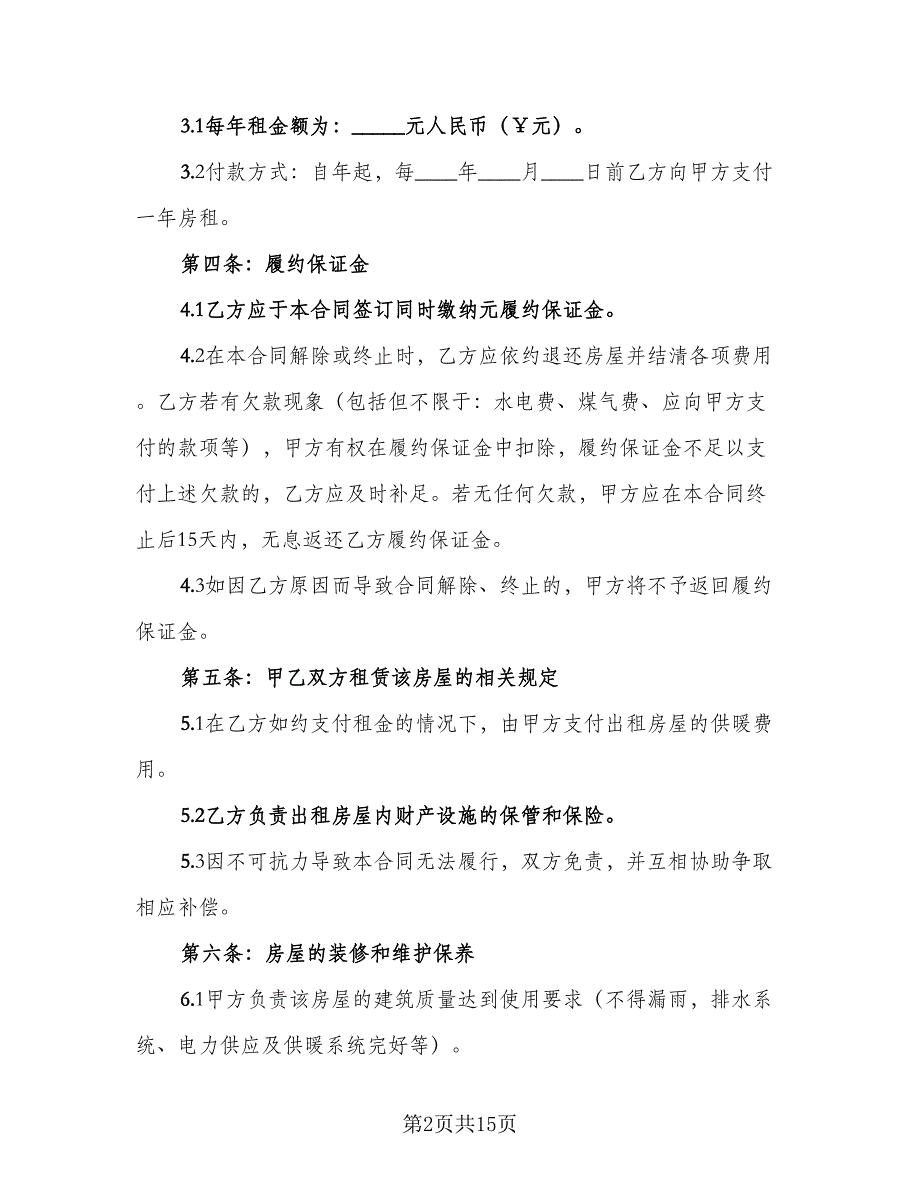 3.1每年租金额为：_____元人民币（￥元）。
3.2付款方式：自年起，每____年____月____日前乙方向甲方支付
一年房租。
第四条：履约保证金
4.1乙方应于本合同签订同时缴纳元履约保证金。
4.2在本合同解除或终止时，乙方应依约退还房屋并结清各项费用
。乙方若有欠款现象（包括但不限于：水电费、煤气费、应向甲方支
付的款项等），甲方有权在履约保证金中扣除，履约保证金不足以支
付上述欠款的，乙方应及时补足。若无任何欠款，甲方应在本合同终
止后15天内，无息返还乙方履约保证金。
4.3如因乙方原因而导致合同解除、终止的，甲方将不予返回履约
保证金。
第五条：甲乙双方租赁该房屋的相关规定
5.1在乙方如约支付租金的情况下，由甲方支付出租房屋的供暖费
用。
5.2乙方负责出租房屋内财产设施的保管和保险。
5.3因不可抗力导致本合同无法履行，双方免责，并互相协助争取
相应补偿。
第六条：房屋的装修和维护保养
6.1甲方负责该房屋的建筑质量达到使用要求（不得漏雨，排水系
统、电力供应及供暖系统完好等）。
第2页共15页